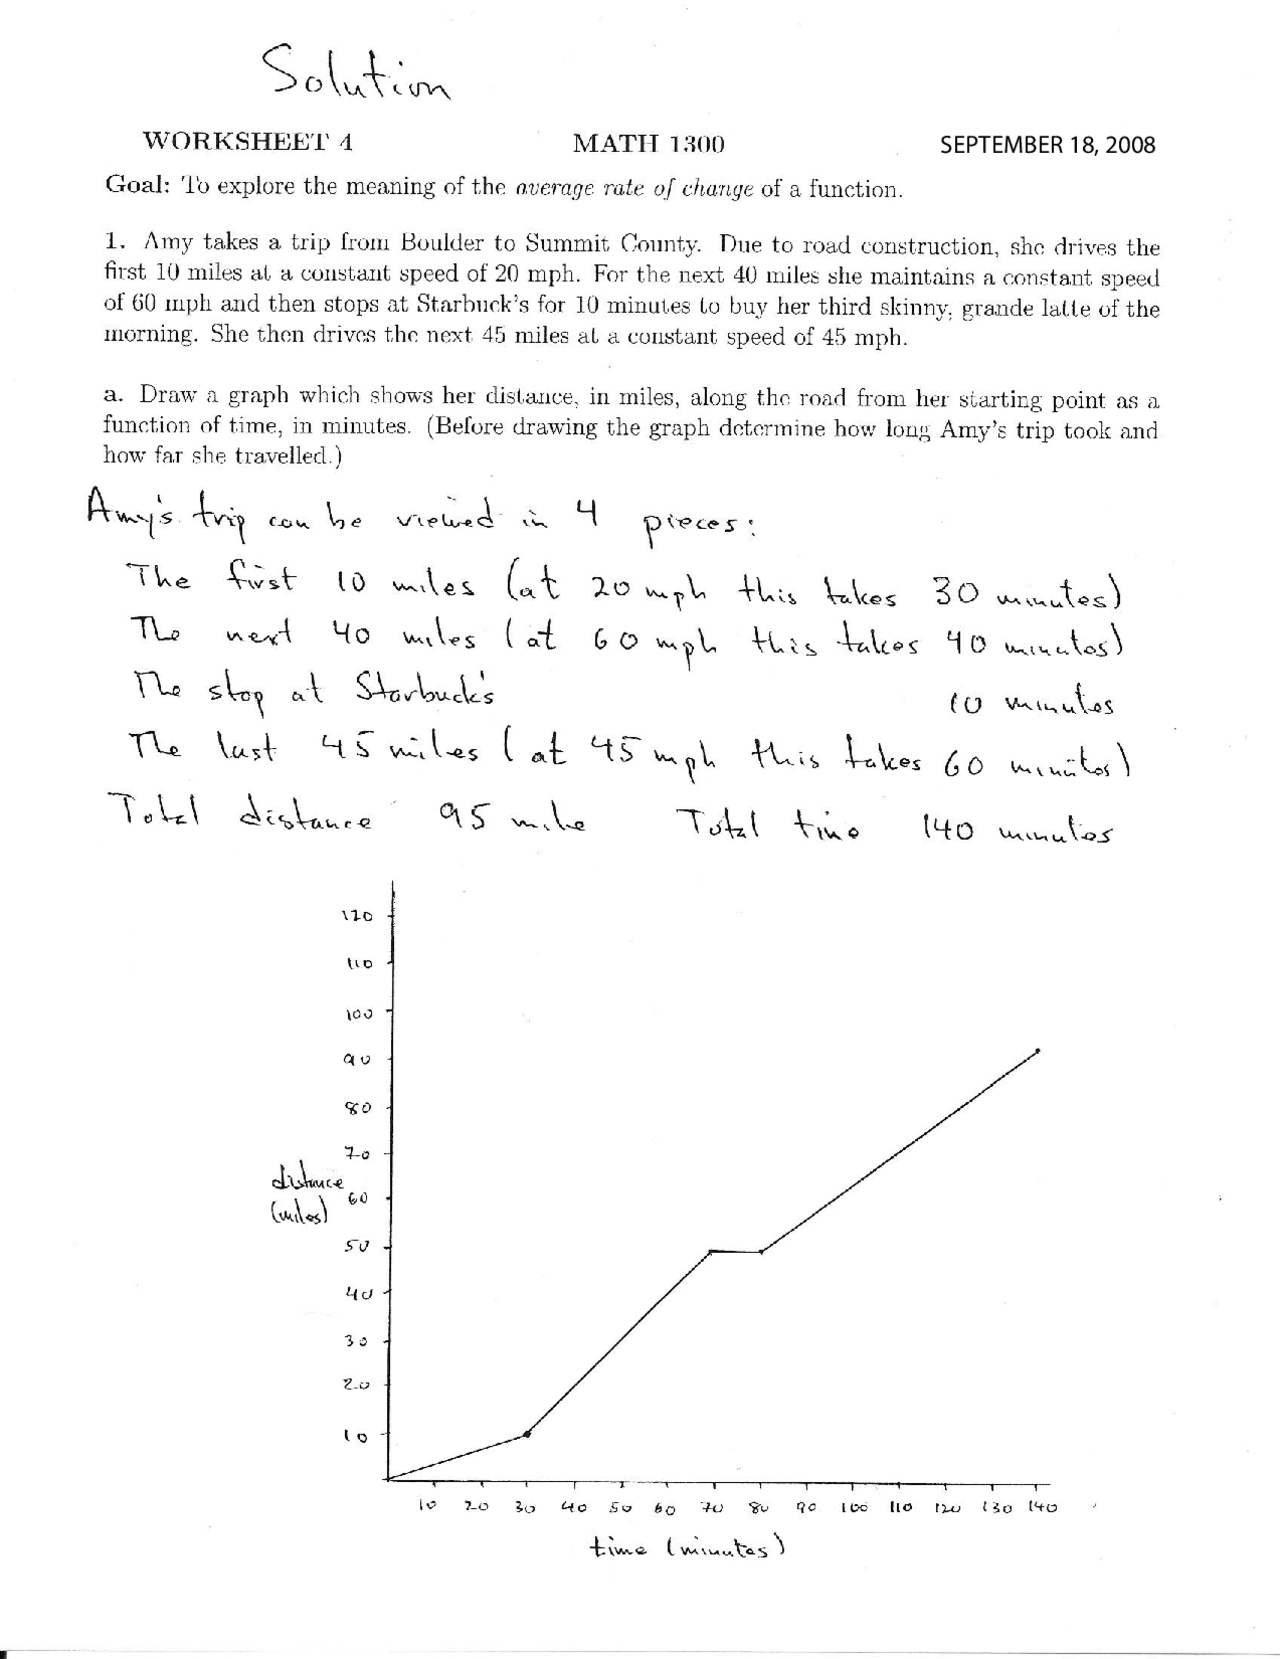 Solution
WORKSHEET 4 MATH 1300 SEPTEMBER 18, 2008
Goal: To explore the meaning of the average rate of change of a function.
1. Amy takes a trip from Boulder to Summit County. Due to road construction, she drives the
first 10 miles at a constant speed of 20 mph. For the next 40 miles she maintains a constant speed
of 60 mph and then stops at Starbuck's for 10 minutes to buy her third skinny, grande latte of the
morning. She then drives the next 45 miles at a constant speed of 45 mph.
a. Draw a graph which shows her distance, in miles, along the road from her starting point as a
function of time, in minutes. (Before drawing the graph determine how long Amy's trip took and
how far she travelled.)
Amy's trip can be viewed in 4 pieces:
The first 10 miles (at 20 mph this takes 30 minutes)
The next 40 miles (at 60 mph this takes 40 minutes)
The stop at Starbuck's 10 minutes
The last 45 miles (at 45 mph this takes 60 minutes)
Total distance 95 mile Total time 140 minutes
120
110
100
90
80
70
distance
60
(miles)
50
40
30
20
10
10 20 30 40 50 60 70 80 90 100 110 120 130 140
time (minutes)